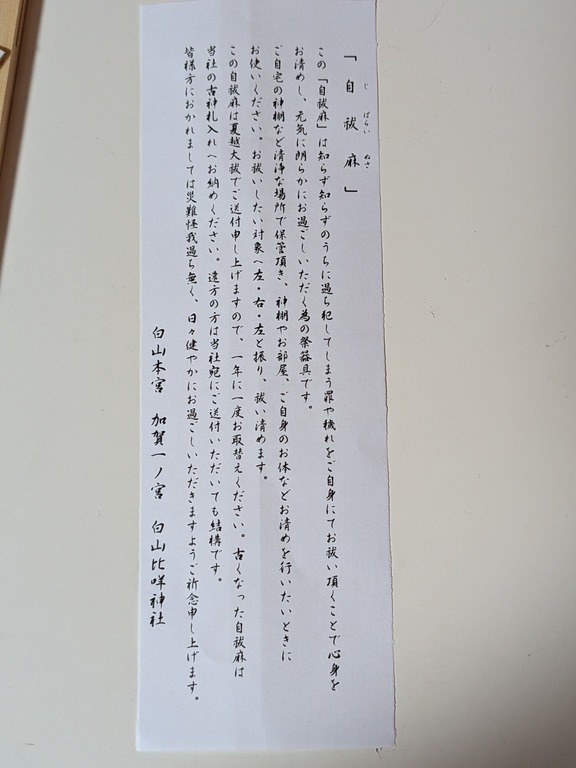 「自祓麻」
じ ばらい ぬさ
この「自祓麻」は知らず知らずのうちに過ち犯してしまう罪や穢れをご自身にてお祓い頂くことで心身を
お清めし、元気に朗らかにお過ごしいただく為の祭器具です。
ご自宅の神棚など清浄な場所で保管頂き、神棚やお部屋、ご自身のお体などお清めを行いたいときに
お使いください。お祓いしたい対象へ左・右・左と振り、祓い清めます。
この自祓麻は夏越大祓でご送付申し上げますので、一年に一度お取替えください。古くなった自祓麻は
当社の古神札入れへお納めください。遠方の方は当社宛にご送付いただいても結構です。
皆様方におかれましては災難怪我過ち無く、日々健やかにお過ごしいただきますようご祈念申し上げます。
白山本宮 加賀一ノ宮 白山比咩神社